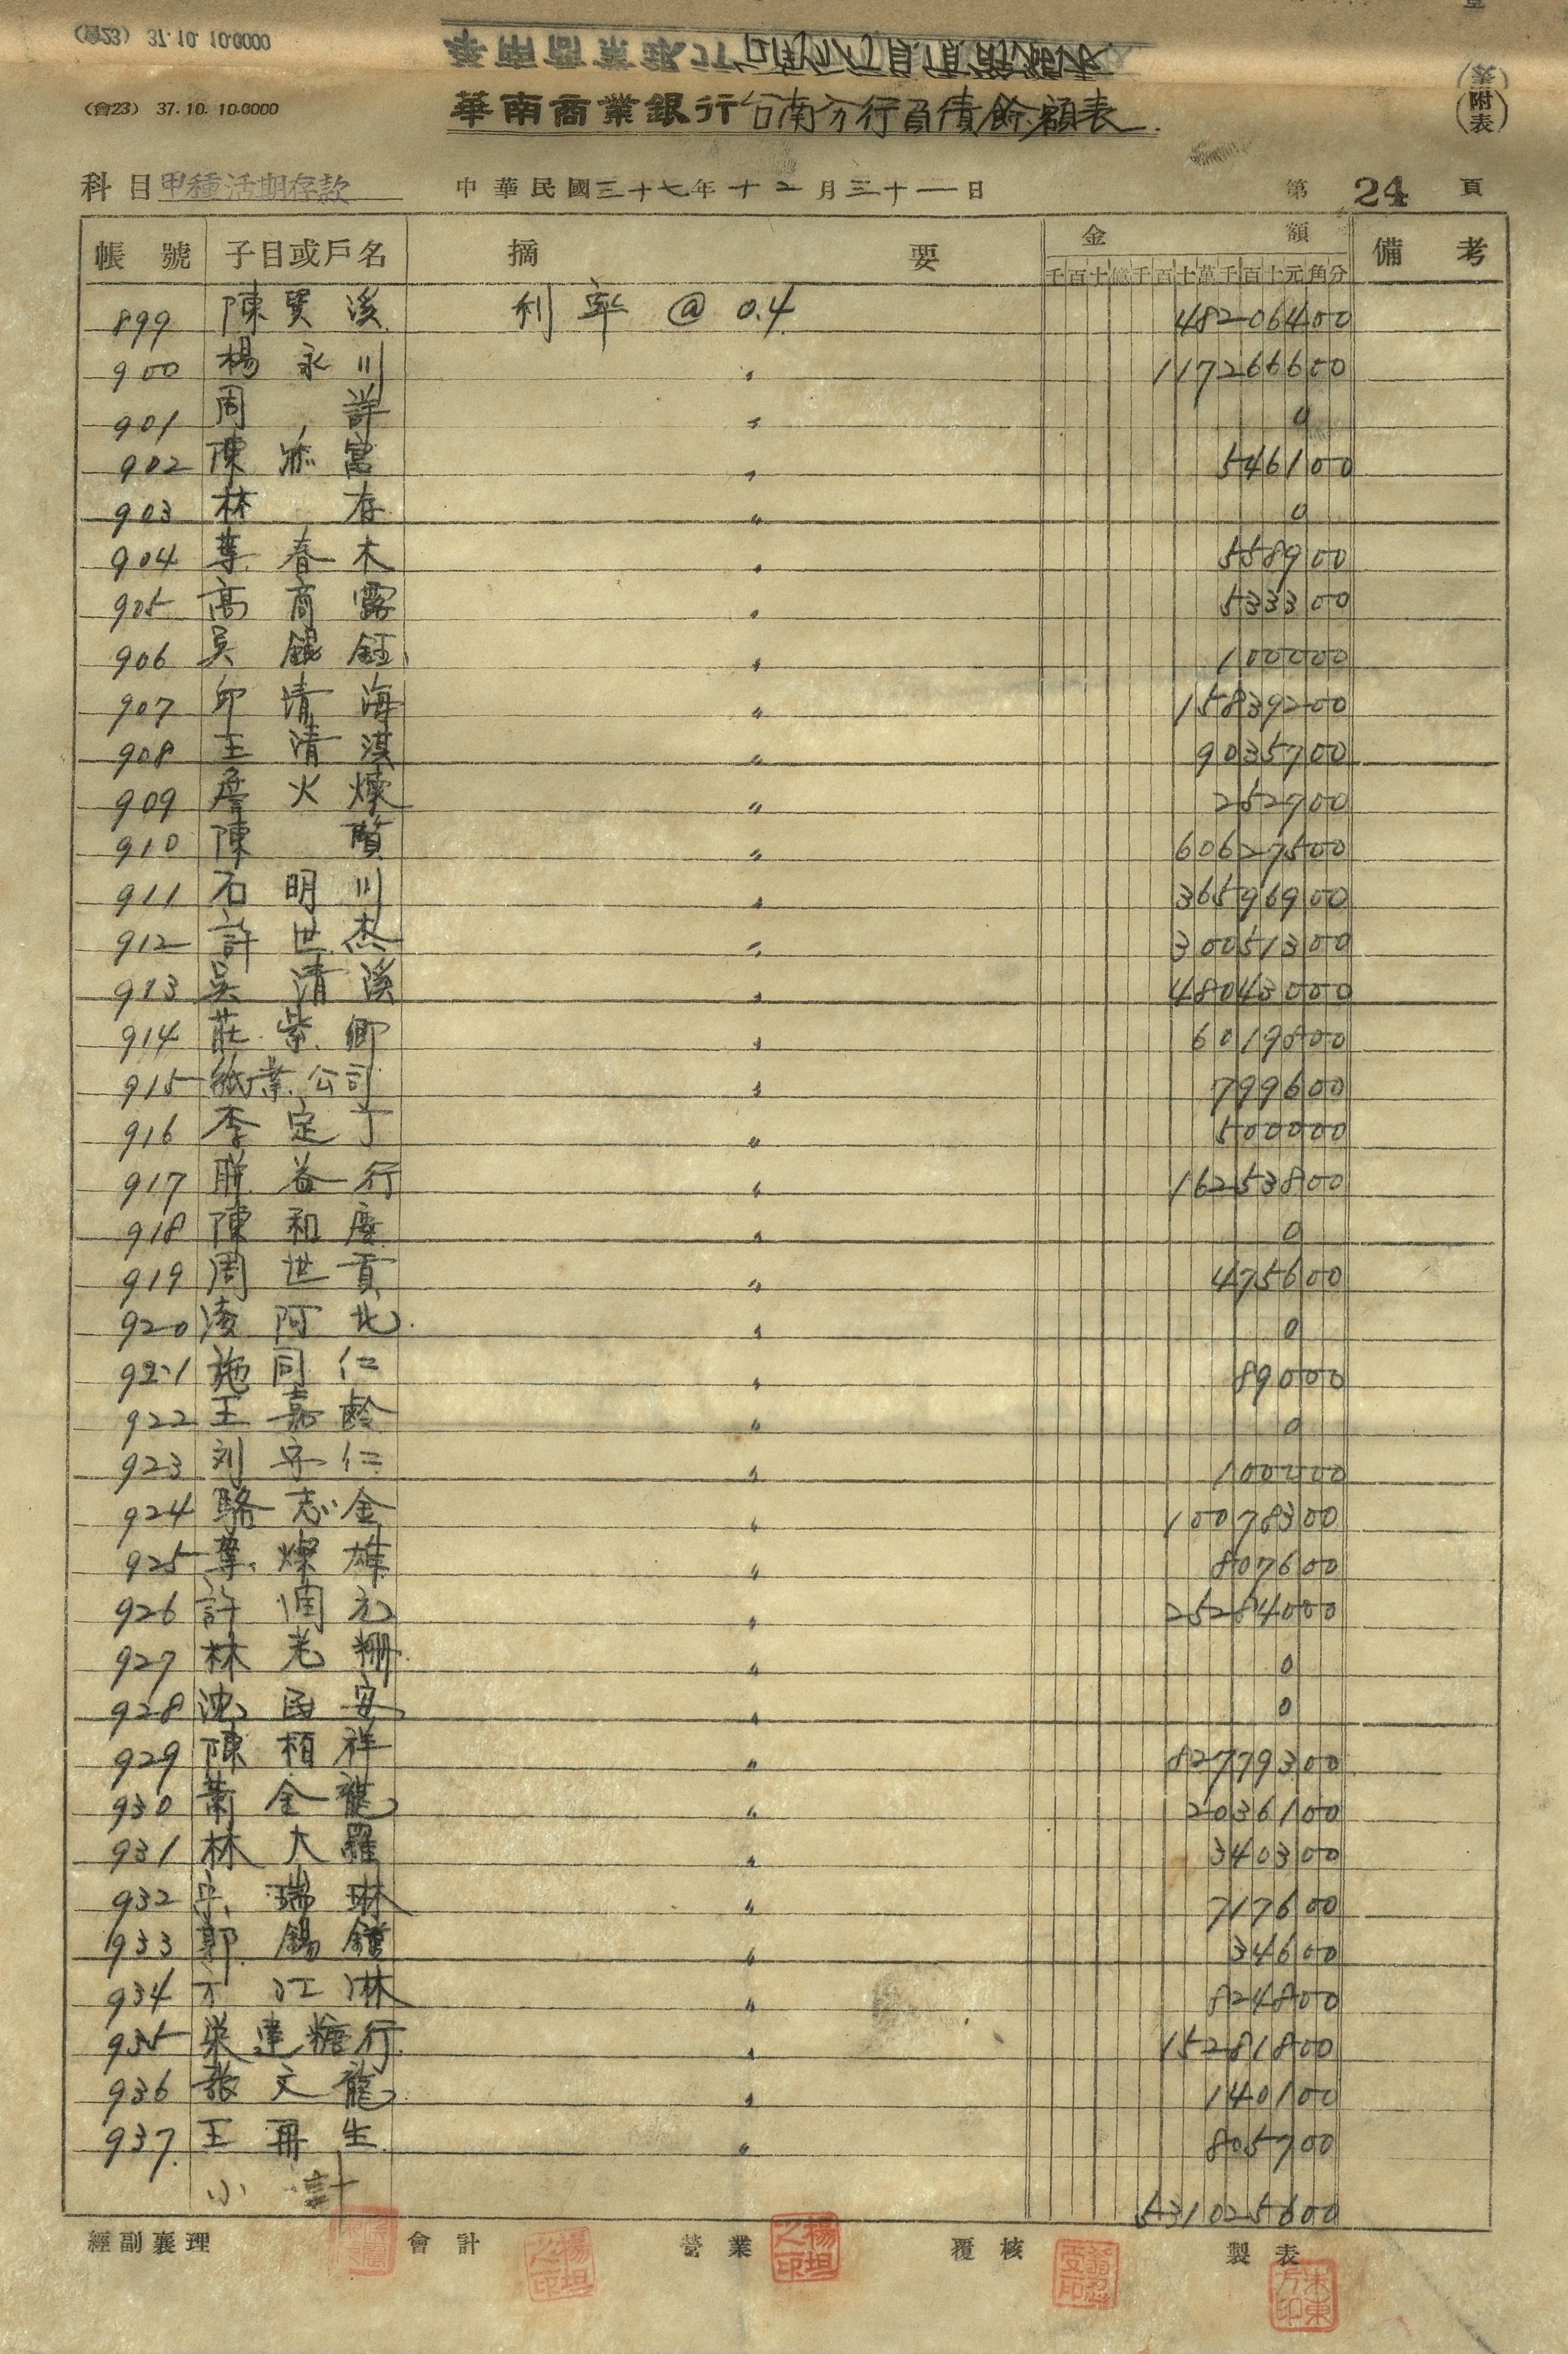 (會23) 37.10.10.0000
華南商業銀行台南分行負債餘額表
(附表)
科目 甲種活期存款 中華民國三十七年十二月三十一日 第 24 頁
帳號 子目或戶名 摘要 金額 備考
千百十億千百十萬千百十元角分
899 陳買溪 利率 @ 0.4 48206400
900 楊永川 〃 117266600
901 周 詳 〃 0
902 陳添富 〃 546100
903 林 存 〃 0
904 葉春木 〃 558900
905 高商露 〃 533300
906 吳錕鈺 〃 100000
907 邱清海 〃 15839200
908 王清淇 〃 9035700
909 詹火煉 〃 252900
910 陳 質 〃 60627500
911 石明川 〃 36596900
912 許世杰 〃 30051300
913 吳清溪 〃 48043000
914 莊紫卿 〃 6019800
915 紙業公司 〃 799600
916 李定丁 〃 500000
917 聯益行 〃 16253800
918 陳和慶 〃 0
919 周世貢 〃 475600
920 凌阿北 〃 0
921 施同仁 〃 89000
922 王嘉齡 〃 0
923 刘安仁 〃 100000
924 駱志金 〃 10078300
925 葉燦雄 〃 807600
926 許開元 〃 25284000
927 林老柵 〃 0
928 沈國安 〃 0
929 陳栢祥 〃 82779300
930 蕭金龍 〃 2036100
931 林大羅 〃 340300
932 宋瑞琳 〃 717600
933 郭錫鐘 〃 34600
934 方江淋 〃 824800
935 榮建糖行 〃 15281800
936 張文龍 〃 140100
937 王再生 〃 805700
小計 531025600
經副襄理 會計 營業 覆核 製表
楊坦之印 楊坦之印 朱東方印